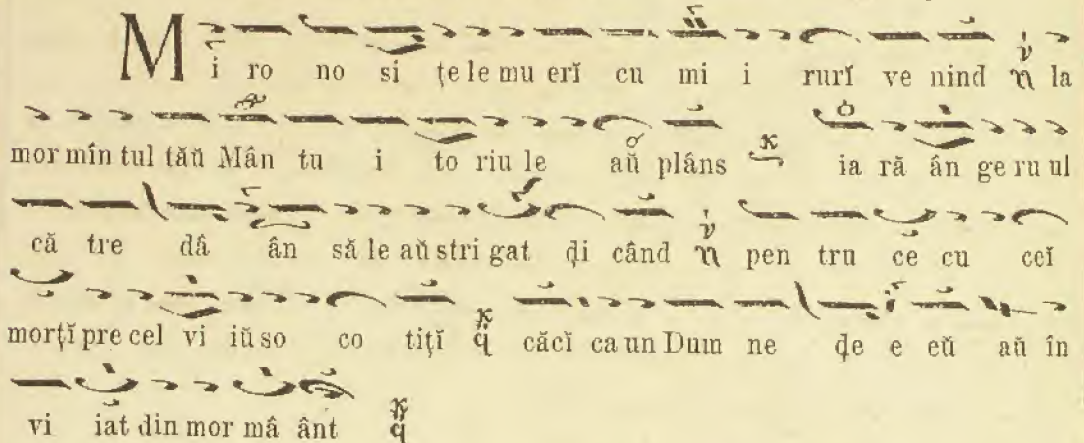 Mi ro no si țe le mu erĭ cu mi i rurĭ ve nind la
mor mîn tul tăŭ Mân tu i to riu le aŭ plâns ia ră ân ge ru ul
că tre dâ ân să le aŭ stri gat ḑi când pen tru ce cu ceĭ
morțĭ pre cel vi iŭ so co tițĭ căcĭ ca un Dum ne ḑe e eŭ aŭ în
vi iat din mor mâ ânt